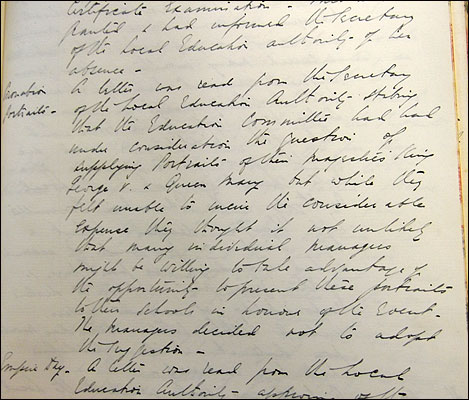 Certificate Examination -
granted & had informed the Secretary
of the Local Education Authority of her
absence -
Coronation Portraits -
A letter was read from the Secretary
of the Local Education Authority stating
that the Education Committee had had
under consideration the question of
supplying Portraits of their Majesties King
George V. & Queen Mary but while they
felt unable to incur the considerable
expense they thought it not unlikely
that many individual managers
might be willing to take advantage of
the opportunity to present these portraits
to their schools in honour of the Event -
The Managers decided not to adopt
the suggestion -
Empire Day -
A letter was read from the Local
Education Authority approving of the